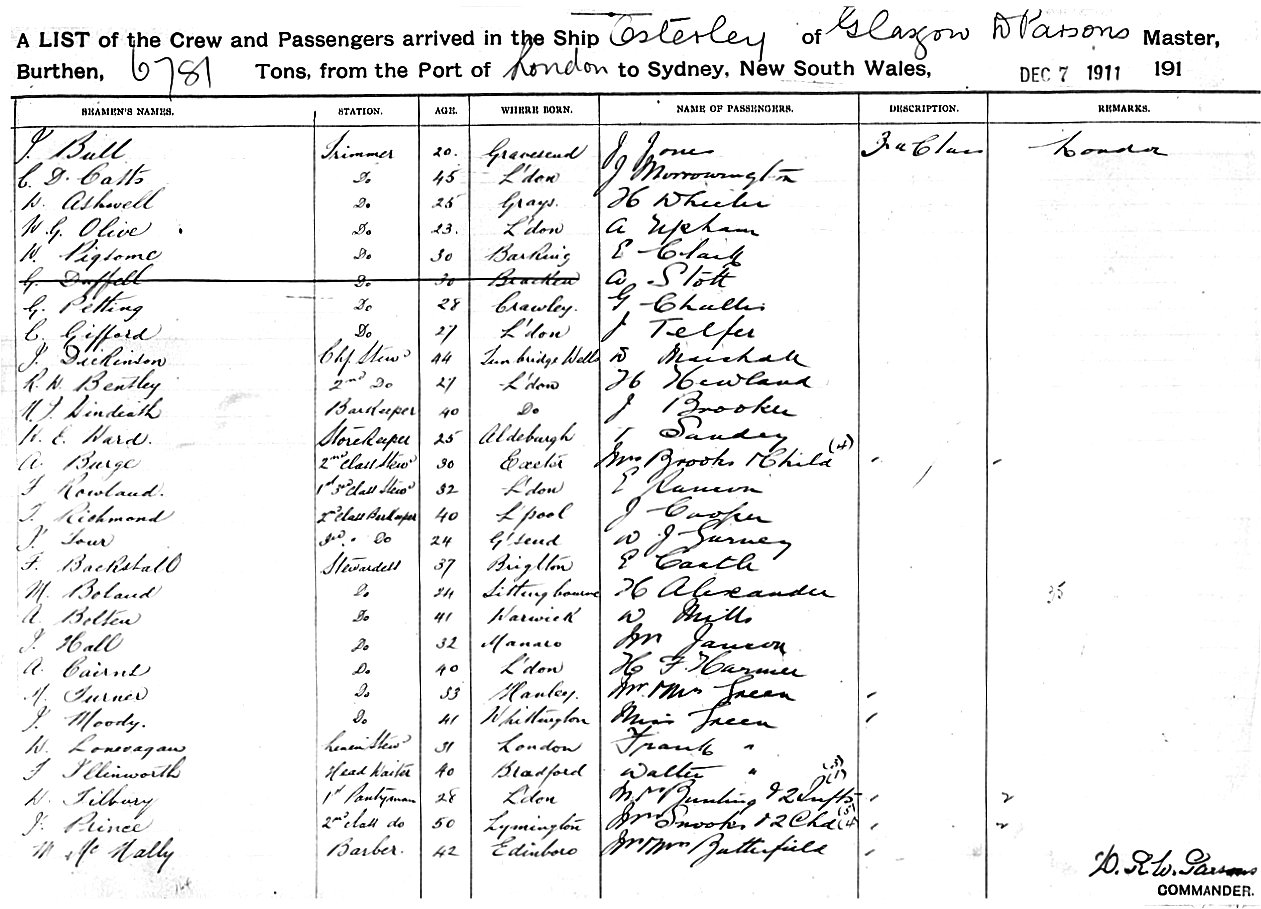 A LIST of the Crew and Passengers arrived in the Ship Osterley of Glasgow D Parsons Master,
Burthen, 6781 Tons, from the Port of London to Sydney, New South Wales, DEC 7 1911 191
SEAMEN'S NAMES. STATION. AGE. WHERE BORN. NAME OF PASSENGERS. DESCRIPTION. REMARKS.
J. Bull Trimmer 20. Gravesend J Jones Class London
C. D. Catts Do 45 L'don J Morrowington
W. Ashwell Do 25 Grays. H Wheeler
W. G. Olive Do 23. L'don A Upham
W. Pigsome Do 30 Barking E Clark
G. Duffell Do 30 Bracken W Stott
G. Petting Do 28 Crawley. G Challis
C. Gifford Do 27 L'don J Telfer
J. Dickinson Chf Stewd 44 Tunbridge Wells D Marshall
R. W. Bentley 2nd Do 27 L'don H Newland
Barkeeper 40 Do J Brooker
W. E. Ward. Storekeeper 25 Aldeburgh Sandey
A. Burge 2nd Class Stewd 30 Exeter Mrs Brooks & Child (4)
F Rowland. 1st 3rd Class Stewd 32 L'don E
T. Richmond 2nd Class Barkeeper 40 L'pool J Cooper
J. Tour 3rd " Do 24 G'send W J Gurney
F. Backshall Stewardess 37 Brighton E Castle
M. Boland Do 24 Sittingbourne H Alexander 35
A. Bolten Do 41 Warwick W Mills
J. Hall Do 32 Manaro Mr
A. Cairns Do 40 L'don H F Harmer
Turner Do 33 Hanley. Mr & Mrs Green
J. Moody. Do 41 Whittington Miss Green
W. Lonevagan Stewd 31 London Frank "
F Illinworth Head Waiter 40 Bradford Walter "
W. Tilbury 1st Pantryman 28 L'don Bunting & 2 Infts 2
J. Prince 2nd Class do 50 Lymington Mrs Snooks & 2 Chd 2
M. McNally Barber. 42 Edinboro Mr & Mrs Butterfield
D. R. W. Parsons
COMMANDER.